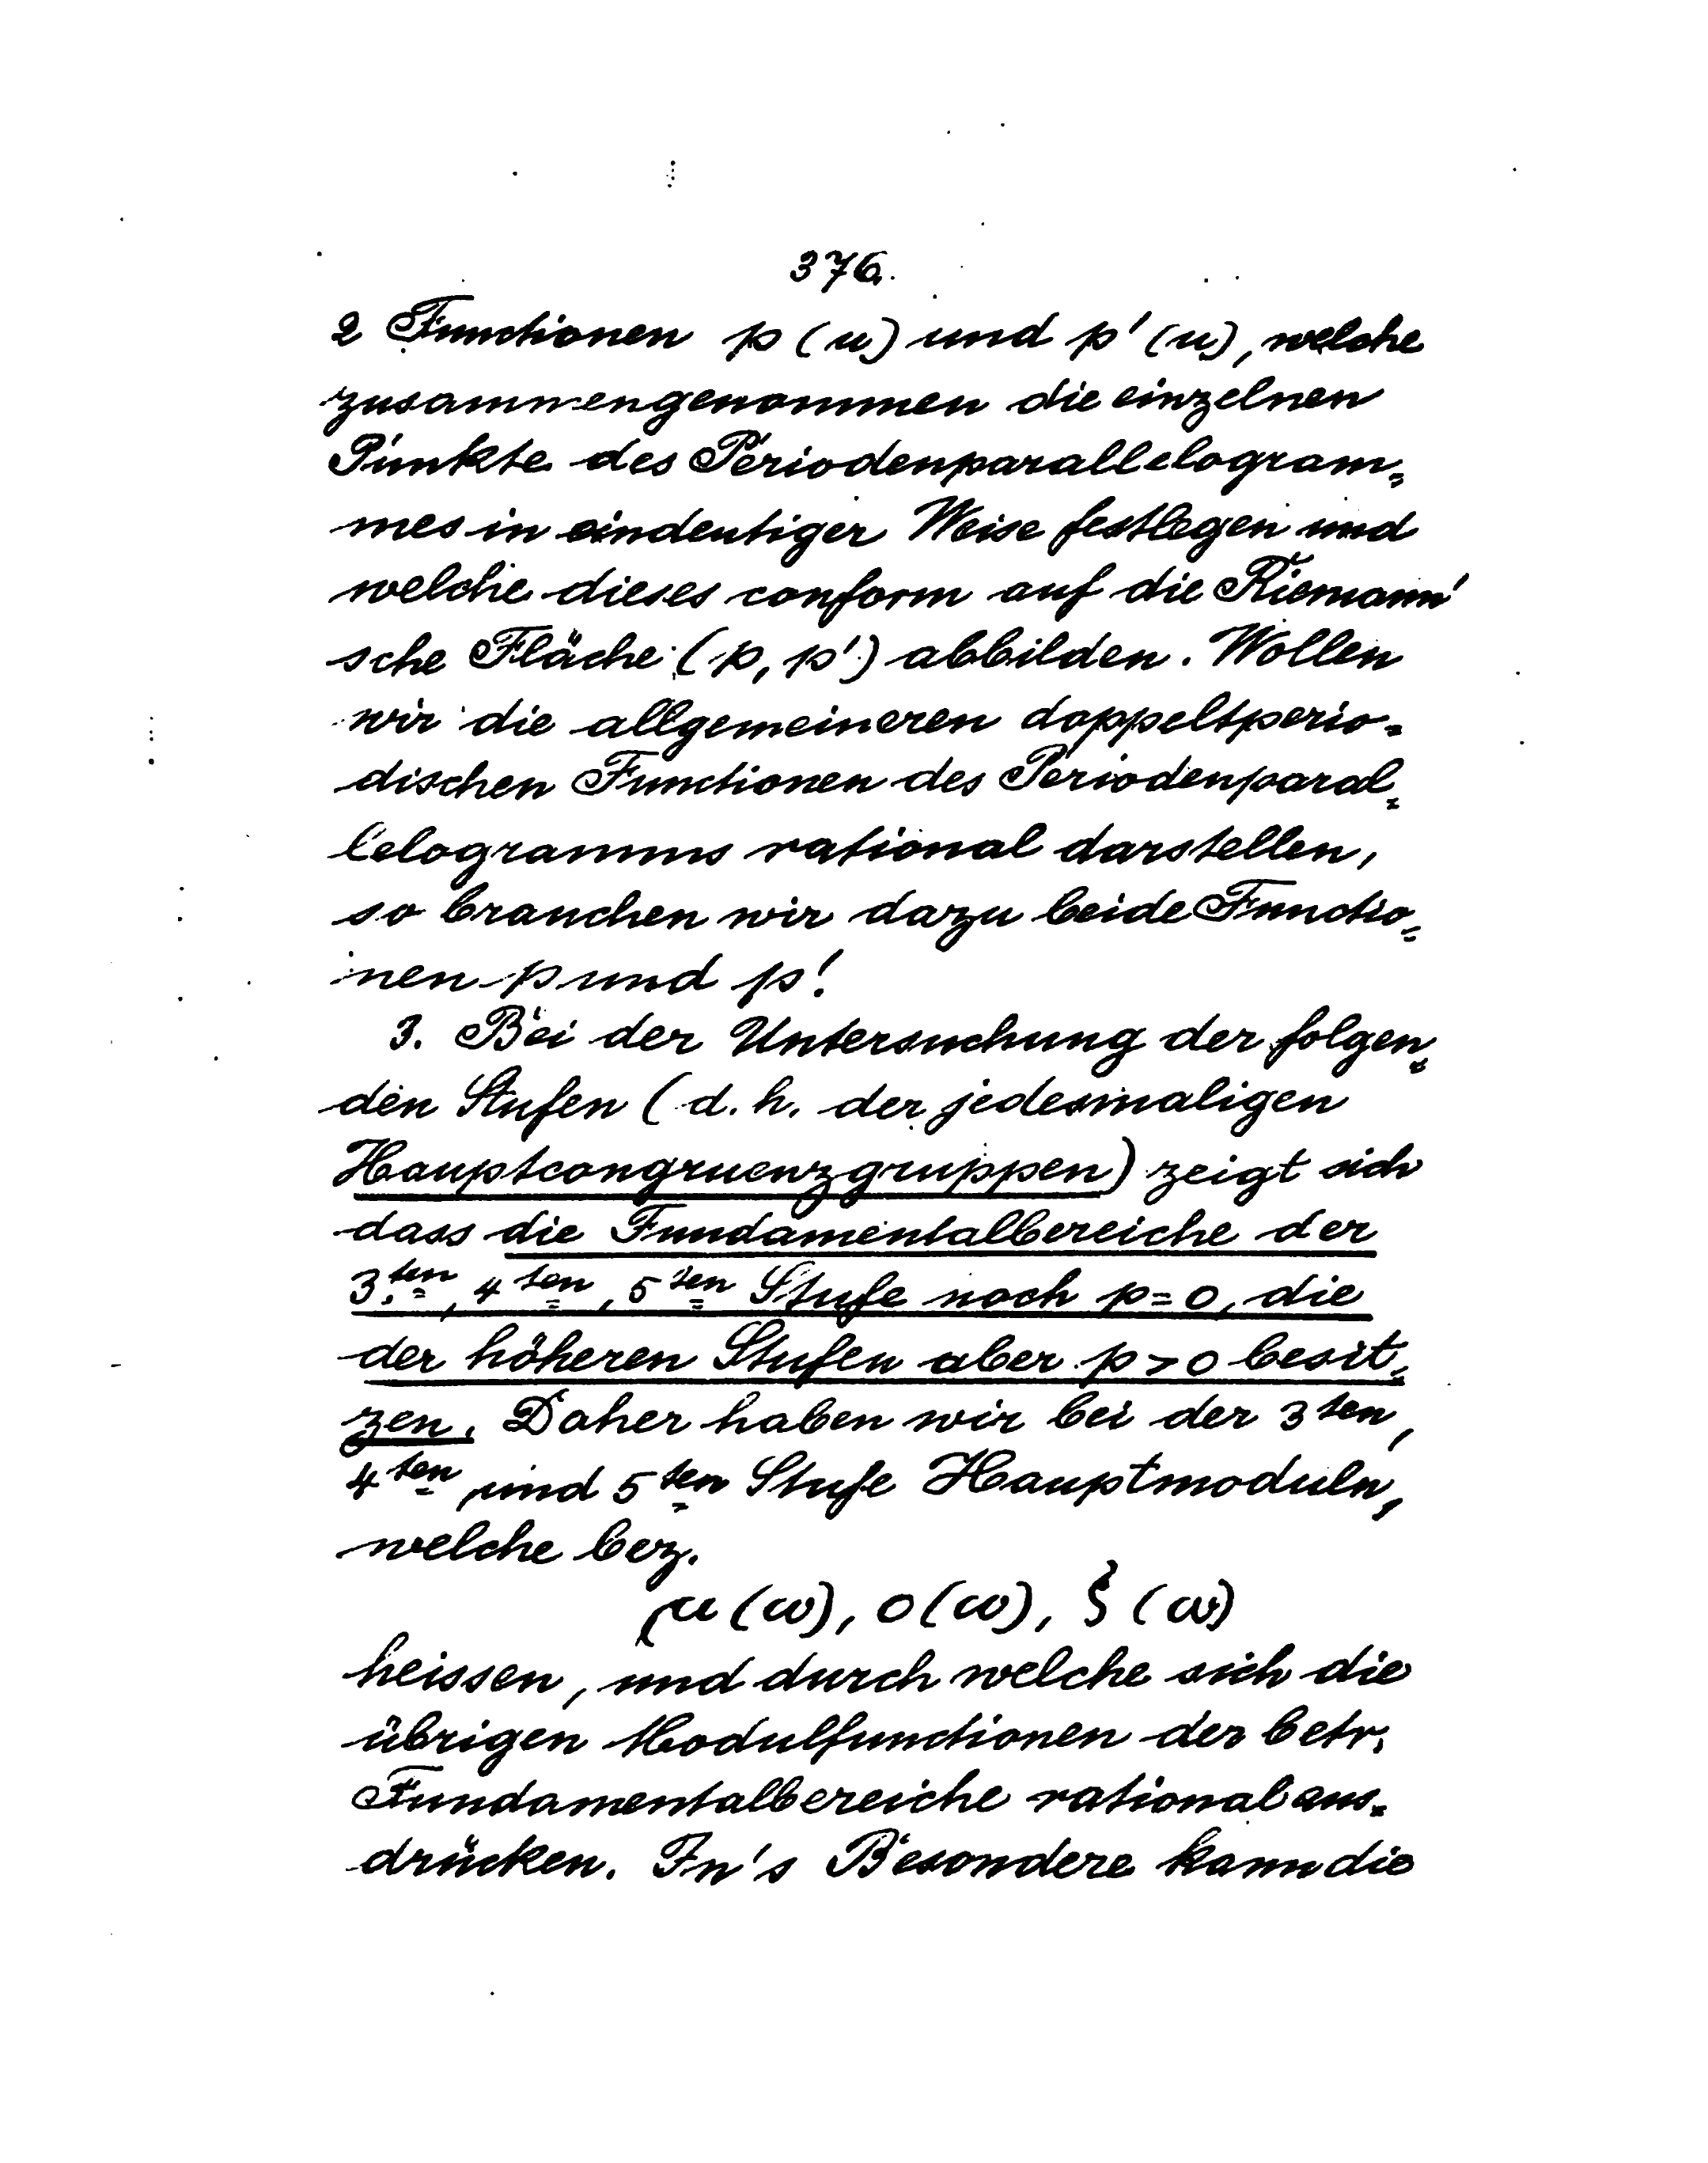 376.
2 Functionen p (u) und p' (u), welche
zusammengenommen die einzelnen
Punkte des Periodenparallelogram=
mes in eindeutiger Weise festlegen und
welche dieses conform auf die Riemann'
sche Fläche (p, p') abbilden. Wollen
wir die allgemeineren doppeltperio=
dischen Functionen des Periodenparal=
lelogramms rational darstellen,
so brauchen wir dazu beide Functio=
nen p und p'.
3. Bei der Untersuchung der folgen=
den Stufen (d. h. der jedesmaligen
Hauptcongruenzgruppen) zeigt sich
dass die Fundamentalbereiche der
3ten, 4ten, 5ten Stufe noch p = 0, die
der höheren Stufen aber p > 0 besit=
zen. Daher haben wir bei der 3ten,
4ten und 5ten Stufe Hauptmoduln,
welche bez.
μ(ω), o(ω), ζ(ω)
heissen, und durch welche sich die
übrigen Modulfunctionen der betr.
Fundamentalbereiche rational aus=
drücken. In's Besondere kann die